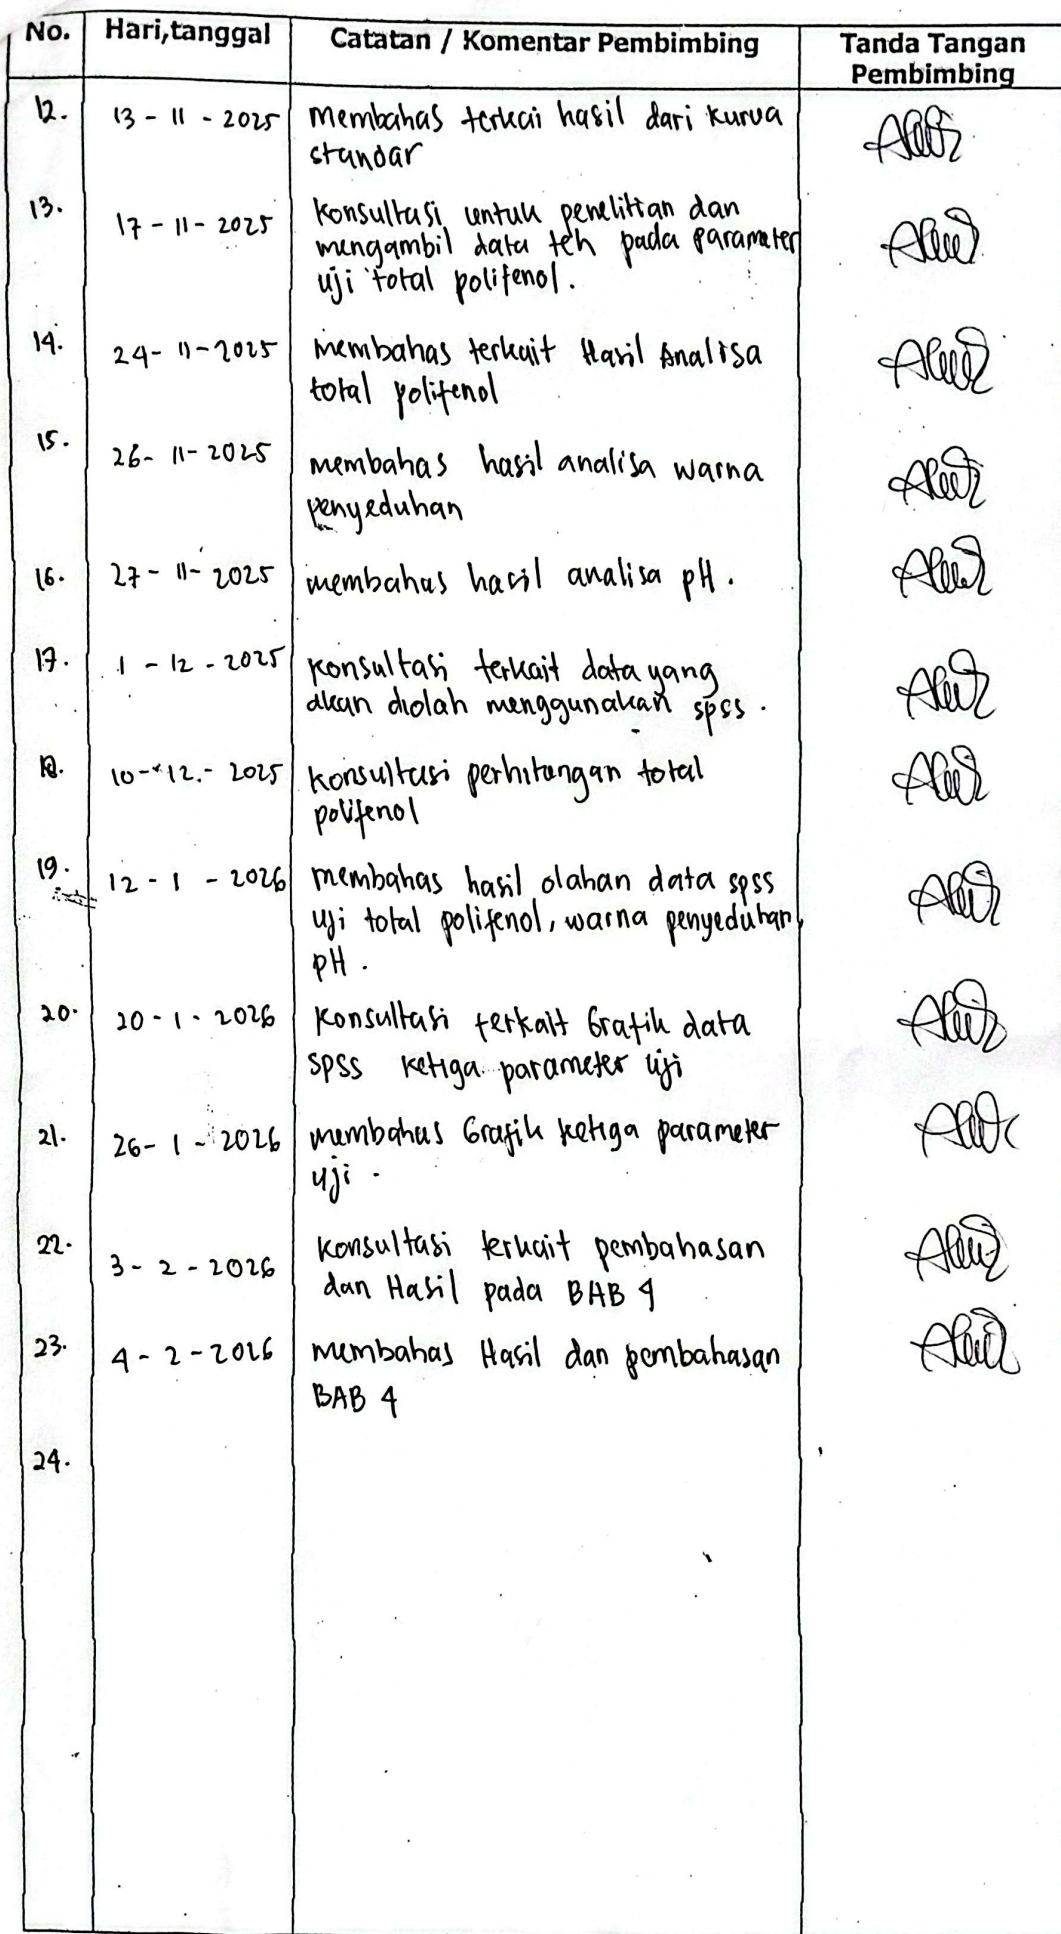 No. Hari,tanggal Catatan / Komentar Pembimbing Tanda Tangan
Pembimbing
12. 13 - 11 - 2025 membahas terkai hasil dari kurva
standar
13. 17 - 11 - 2025 Konsultasi untuk penelitian dan
mengambil data teh pada parameter
uji total polifenol.
14. 24 - 11 - 2025 membahas terkait Hasil Analisa
total polifenol
15. 26 - 11 - 2025 membahas hasil analisa warna
penyeduhan
16. 27 - 11 - 2025 membahas hasil analisa pH.
17. 1 - 12 - 2025 konsultasi terkait data yang
akan diolah menggunakan spss.
18. 10 - 12 - 2025 konsultasi perhitungan total
polifenol
19. 12 - 1 - 2026 membahas hasil olahan data spss
uji total polifenol, warna penyeduhan,
pH.
20. 20 - 1 - 2026 Konsultasi terkait Grafik data
SPSS ketiga parameter uji
21. 26 - 1 - 2026 membahas Grafik ketiga parameter
uji.
22. 3 - 2 - 2026 Konsultasi terkait pembahasan
dan Hasil pada BAB 4
23. 4 - 2 - 2026 membahas Hasil dan pembahasan
BAB 4
24.